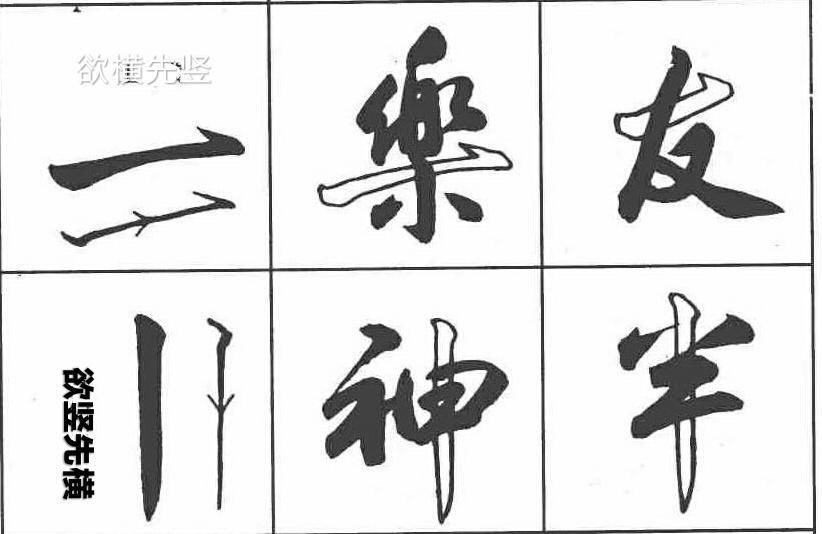 欲横先竖
樂 友
欲竖先横
神 半